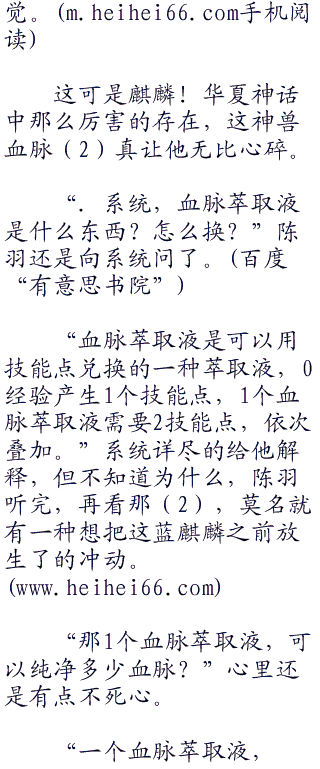 觉。(m.heihei66.com手机阅
读)
这可是麒麟！华夏神话
中那么厉害的存在，这神兽
血脉（2）真让他无比心碎。
“．系统，血脉萃取液
是什么东西？怎么换？”陈
羽还是向系统问了。(百度
“有意思书院”)
“血脉萃取液是可以用
技能点兑换的一种萃取液，0
经验产生1个技能点，1个血
脉萃取液需要2技能点，依次
叠加。”系统详尽的给他解
释，但不知道为什么，陈羽
听完，再看那（2），莫名就
有一种想把这蓝麒麟之前放
生了的冲动。
(www.heihei66.com)
“那1个血脉萃取液，可
以纯净多少血脉？”心里还
是有点不死心。
“一个血脉萃取液，